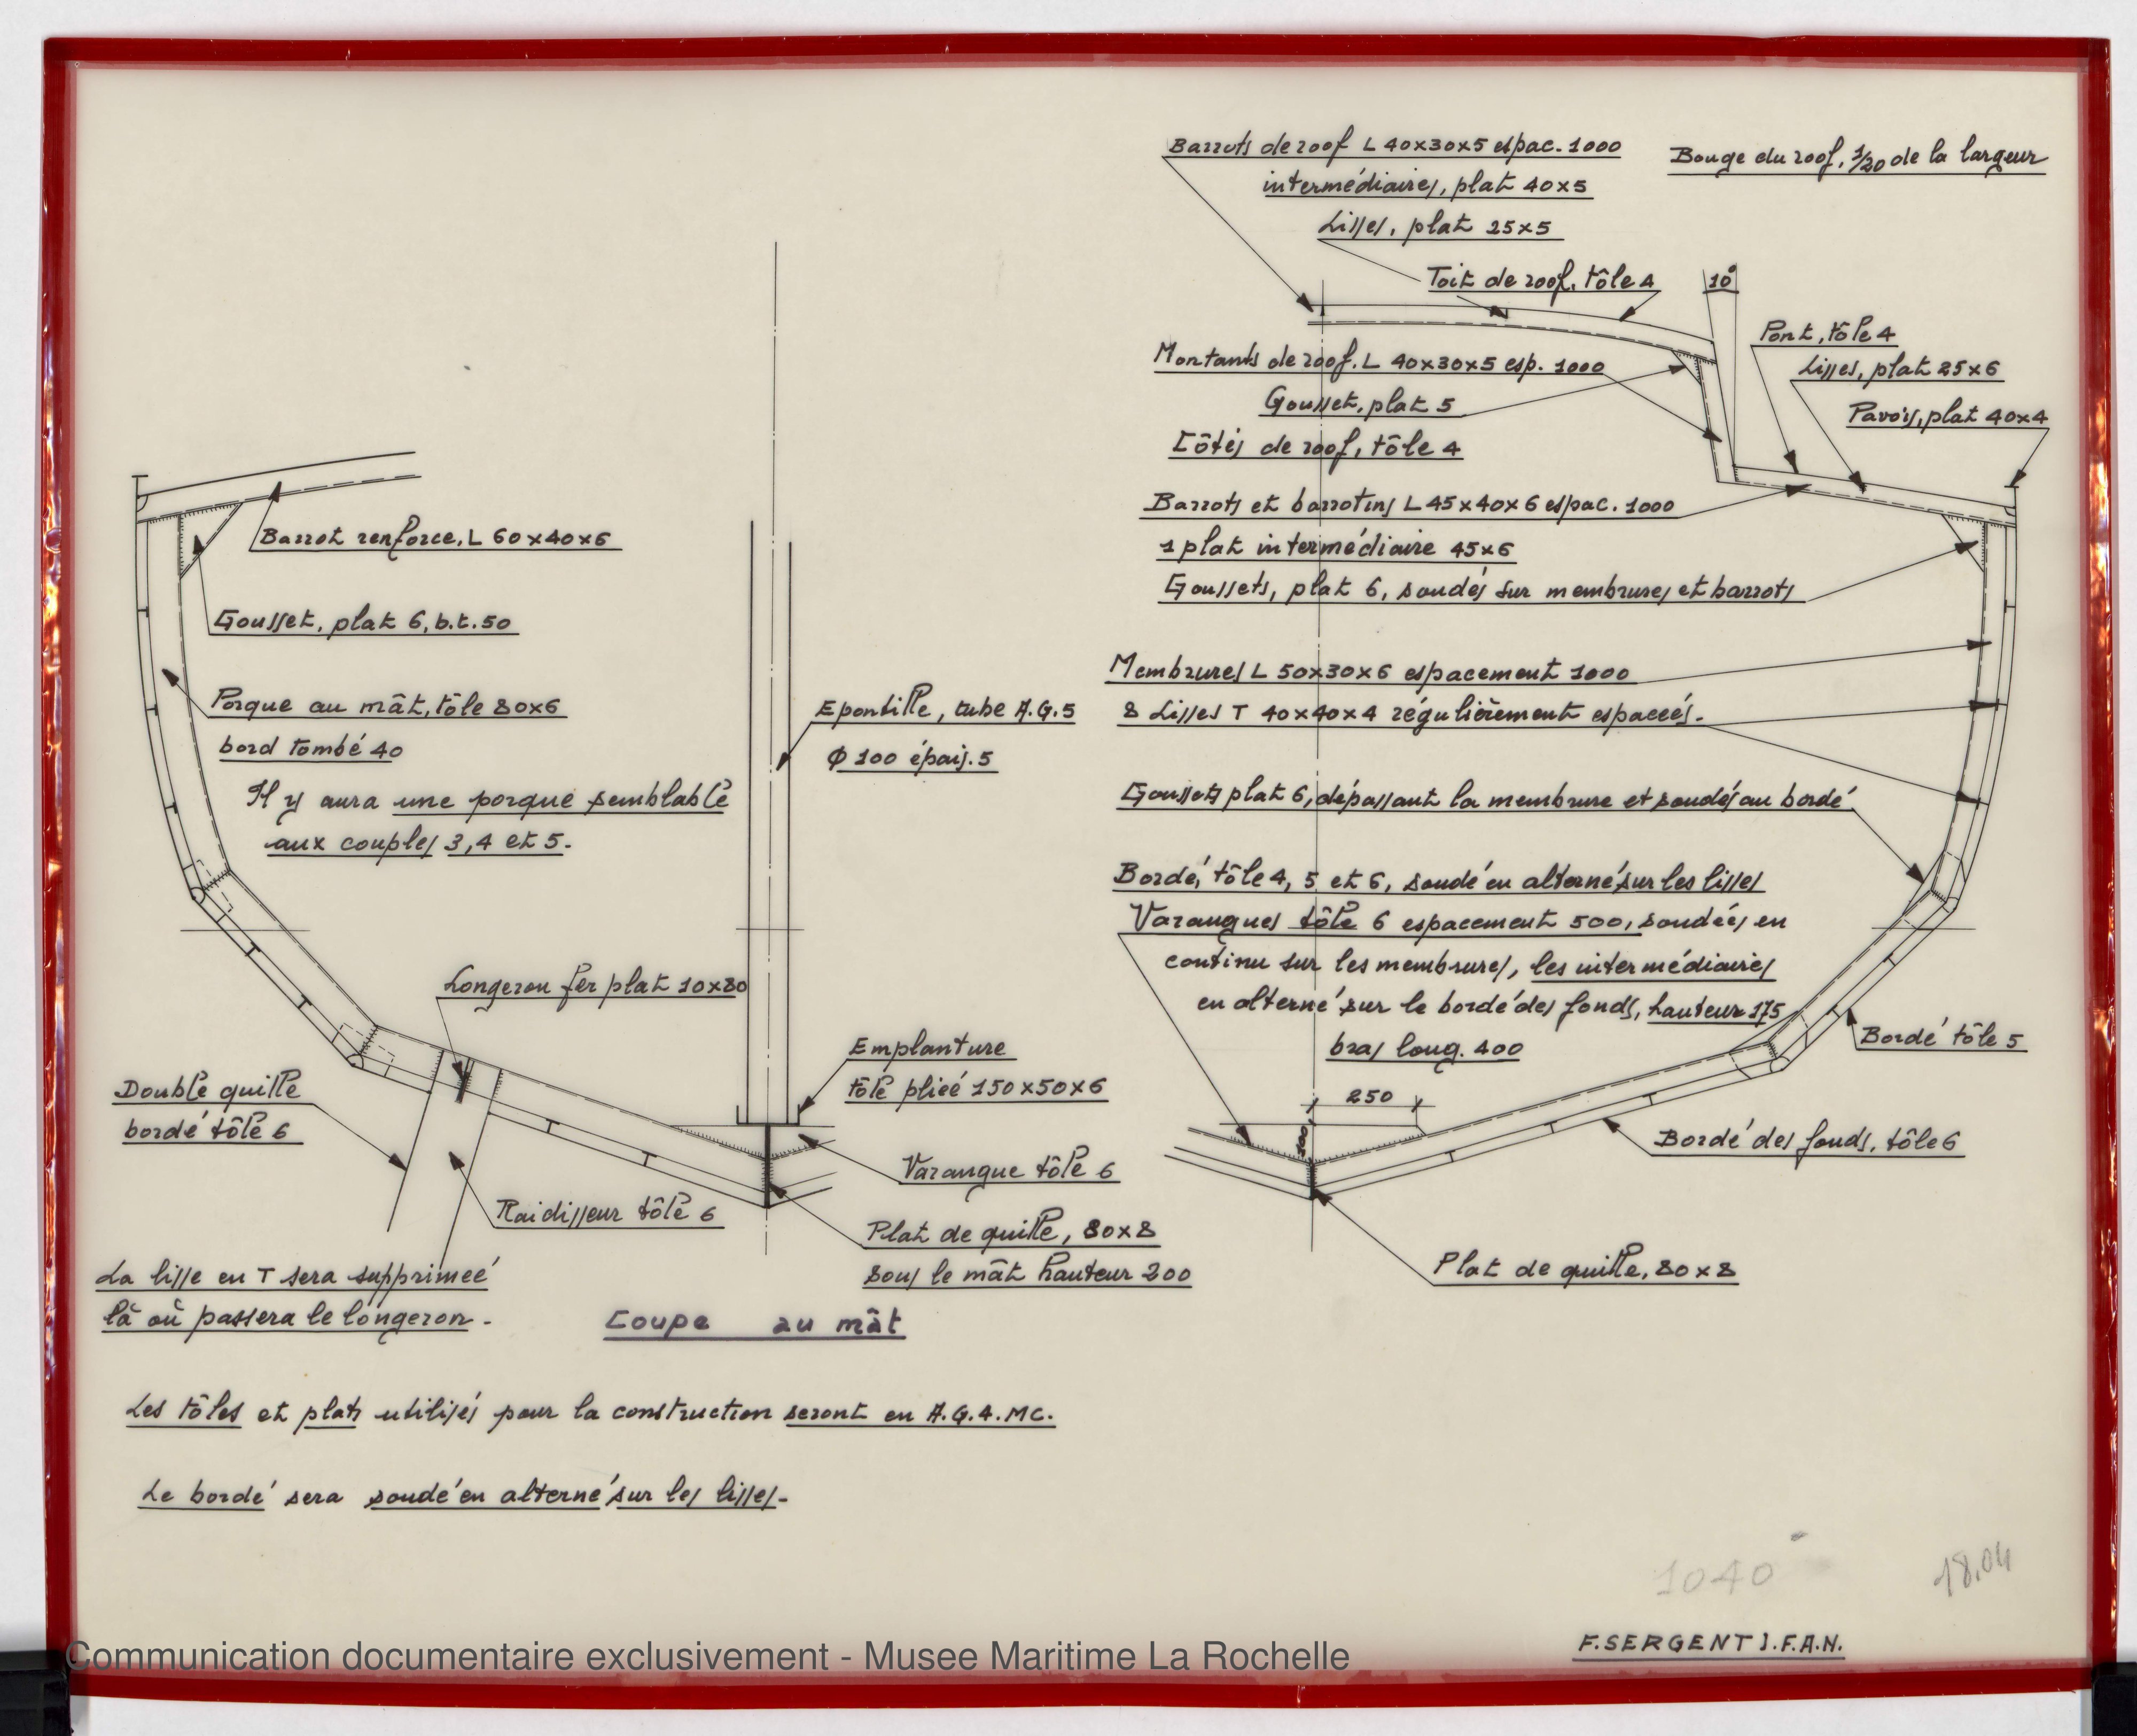 Barrots de roof L 40x30x5 espac. 1000
intermédiaires, plat 40x5
Lisses, plat 25x5
Toit de roof, tôle 4
Bouge du roof, 1/20 de la largeur
10°
Pont, tôle 4
Lisses, plat 25x6
Pavois, plat 40x4
Montants de roof. L 40x30x5 esp. 1000
Gousset, plat 5
Côtés de roof, tôle 4
Barrots et barrotins L 45x40x6 espac. 1000
1 plat intermédiaire 45x6
Goussets, plat 6, soudés sur membrures et barrots
Membrures L 50x30x6 espacement 1000
8 Lisses T 40x40x4 régulièrement espacées.
Goussets plat 6, dépassant la membrure et soudés au bordé
Bordé, tôle 4, 5 et 6, soudé en alterné sur les lisses
Varangues tôle 6 espacement 500, soudées en
continu sur les membrures, les intermédiaires
en alterné sur le bordé des fonds, hauteur 175
bras long. 400
250
200
Bordé tôle 5
Bordé des fonds, tôle 6
Plat de quille, 80x8
Barrot renforce, L 60x40x6
Gousset, plat 6, b.t. 50
Porque au mât, tôle 80x6
bord tombé 40
Il y aura une porque semblable
aux couples 3, 4 et 5.
Epontille, tube A.G.5
Φ 100 épais. 5
Longeron fer plat 10x80
Emplanture
tôle pliée 150x50x6
Double quille
bordé tôle 6
Varangue tôle 6
Raidisseur tôle 6
Plat de quille, 80x8
sous le mât hauteur 200
La lisse en T sera supprimée
là où passera le longeron.
Coupe au mât
Les tôles et plats utilisés pour la construction seront en A.G.4.MC.
Le bordé sera soudé en alterné sur les lisses.
1040
18.04
F. SERGENT I.F.A.N.
Communication documentaire exclusivement - Musee Maritime La Rochelle